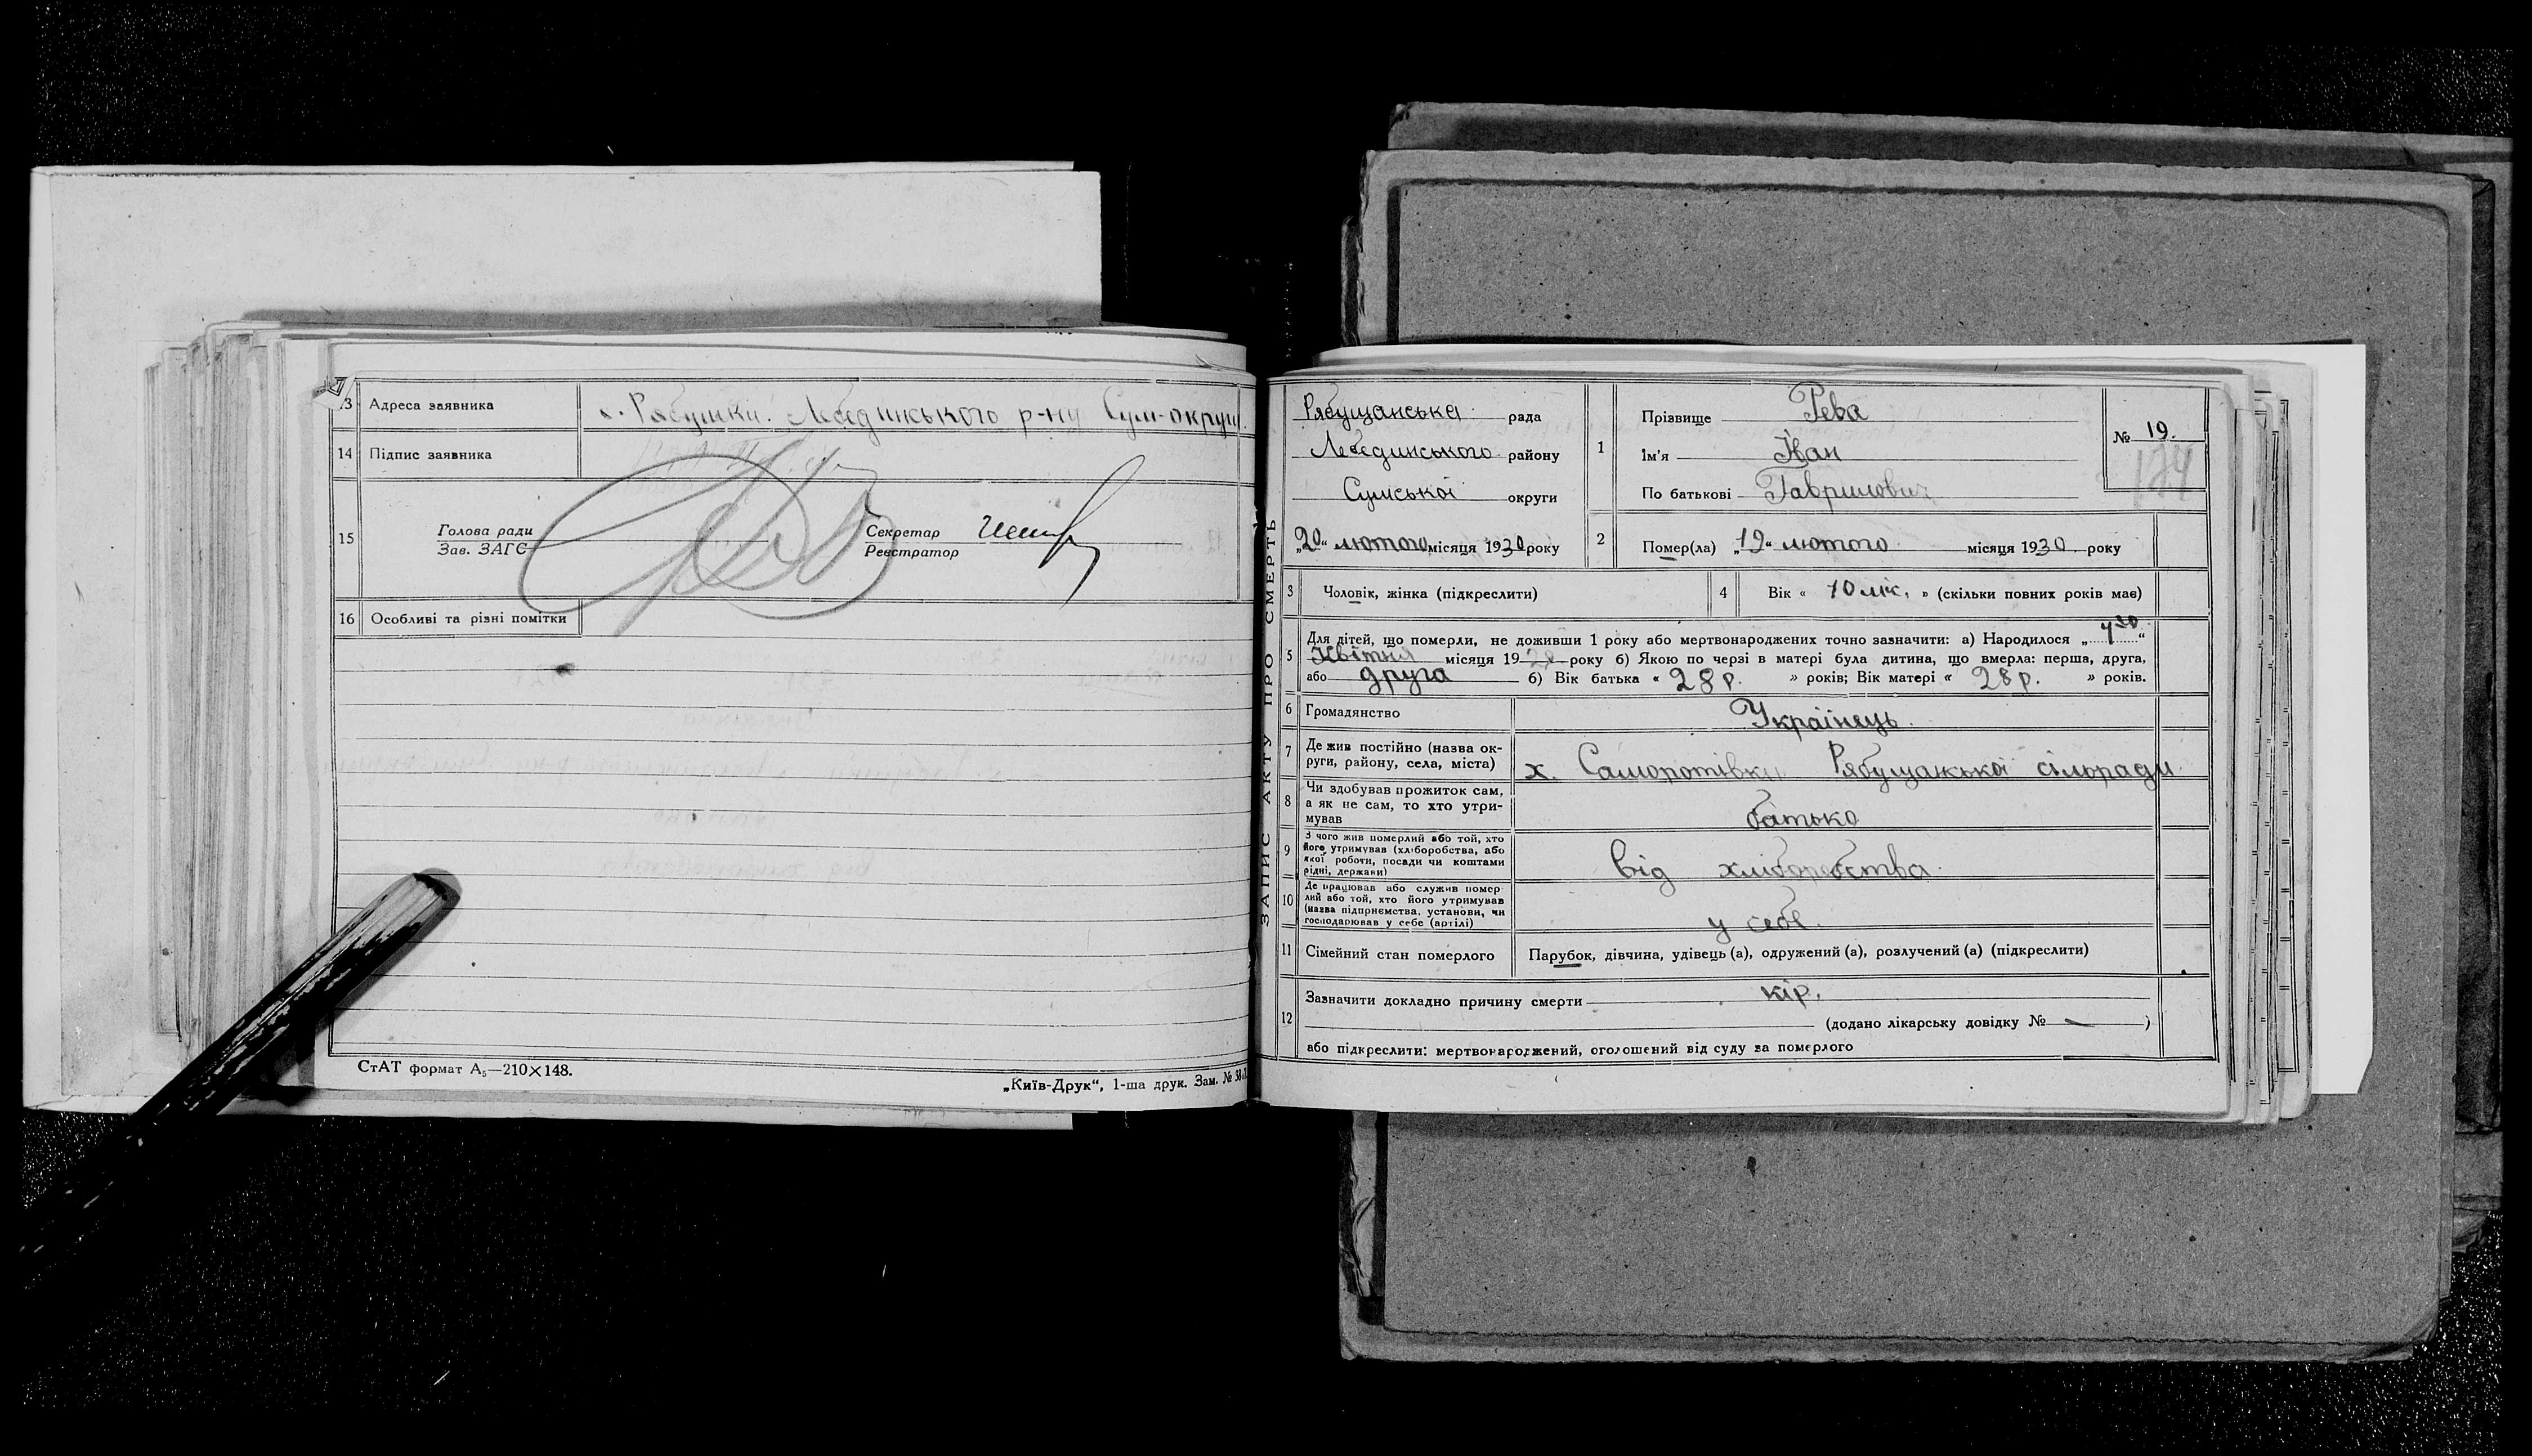 13 Адреса заявника с. Рябушки. Лебединського р-ну Сум-округи.
14 Підпис заявника
15 Голова ради
Зав. ЗАГС
Секретар
Реєстратор
16 Особливі та різні помітки
СтАТ формат А₅—210×148.
„Київ-Друк“, 1-ша друк. Зам. №
ЗАПИС АКТУ ПРО СМЕРТЬ
Рябущанська рада
Лебединського району
Сумської округи
„20“ лютого місяця 1930 року
1 Прізвище Рева
Ім'я Іван
По батькові Гаврилович
№ 19.
174
2 Помер(ла) „19“ лютого місяця 1930 року
3 Чоловік, жінка (підкреслити)
4 Вік « 10 міс. » (скільки повних років має)
5 Для дітей, що померли, не доживши 1 року або мертвонароджених точно зазначити: а) Народилося „ 4го “
Квітня місяця 1929 року б) Якою по черзі в матері була дитина, що вмерла: перша, друга,
або друга б) Вік батька « 28 р. » років; Вік матері « 28 р. » років.
6 Громадянство Українець.
7 Де жив постійно (назва ок-
руги, району, села, міста) х. Саморотівка Рябущанської сільради
8 Чи здобував прожиток сам,
а як не сам, то хто утри-
мував батько
9 З чого жив померлий або той, хто
його утримував (хліборобства, або
якої роботи, посади чи коштами
рідні, держави) від хліборобства.
10 Де працював або служив помер-
лий або той, хто його утримував
(назва підприємства, установи, чи
господарював у себе (артілі) у себе.
11 Сімейний стан померлого Парубок, дівчина, удівець (а), одружений (а), розлучений (а) (підкреслити)
12 Зазначити докладно причину смерти кір.
(додано лікарську довідку № — )
або підкреслити: мертвонароджений, оголошений від суду за померлого